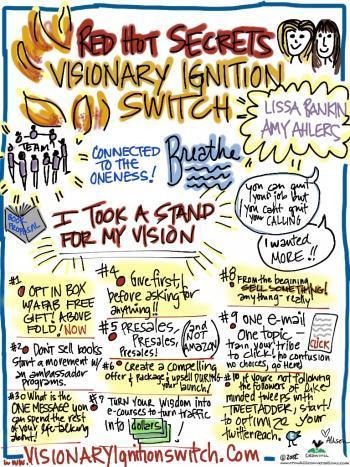 RED HOT SECRETS
VISIONARY IGNITION
SWITCH
LISSA RANKIN
AMY AHLERS
TEAM
CONNECTED
TO THE
ONENESS!
Breathe
you can quit
your job but
you can't quit
your CALLING
I wanted
MORE!!
BOOK
PROPOSAL
I TOOK A STAND
FOR MY VISION
#1
OPT IN BOX
W/A FAB FREE
GIFT! ABOVE
FOLD! NOW
#2 Don't sell books
start a movement w/
an ambassador
programs.
#3 What is the
ONE MESSAGE you
can spend the rest
of your life talking
about!
#4 Give first,
before asking for
anything!!
#5 PRESALES,
PRESALES,
Presales!
(and NOT
AMAZON)
#6 Create a compelling
offer & package & upsell DURING
your launch!
#7 TURN YOUR WISDOM INTO
e-courses to turn traffic
into dollars!
#8 From the begining
SELL SOMETHING!
anything - really!
#9 one e-mail
One topic -
train your tribe
to CLICK! no confusion
no choices, go here!
CLICK
#10 If you're not following
the followers of like
minded tweeps with
TWEETADDER, start!
to optimize your
twitter reach.
www.VISIONARYIgnitionswitch.Com